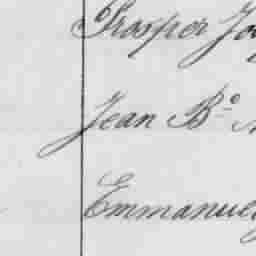 Prosper Jo
Jean B.º
Emmanuel